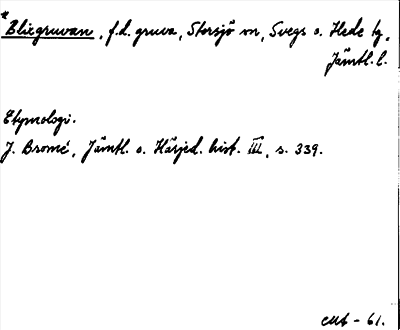 *Blixgruvan, f.d. gruva, Storsjö sn, Svegs o. Hede tg,
Jämtl. l.
Etymologi.
J. Bromé, Jämtl. o. Härjed. hist. III, s. 339.
- 61.